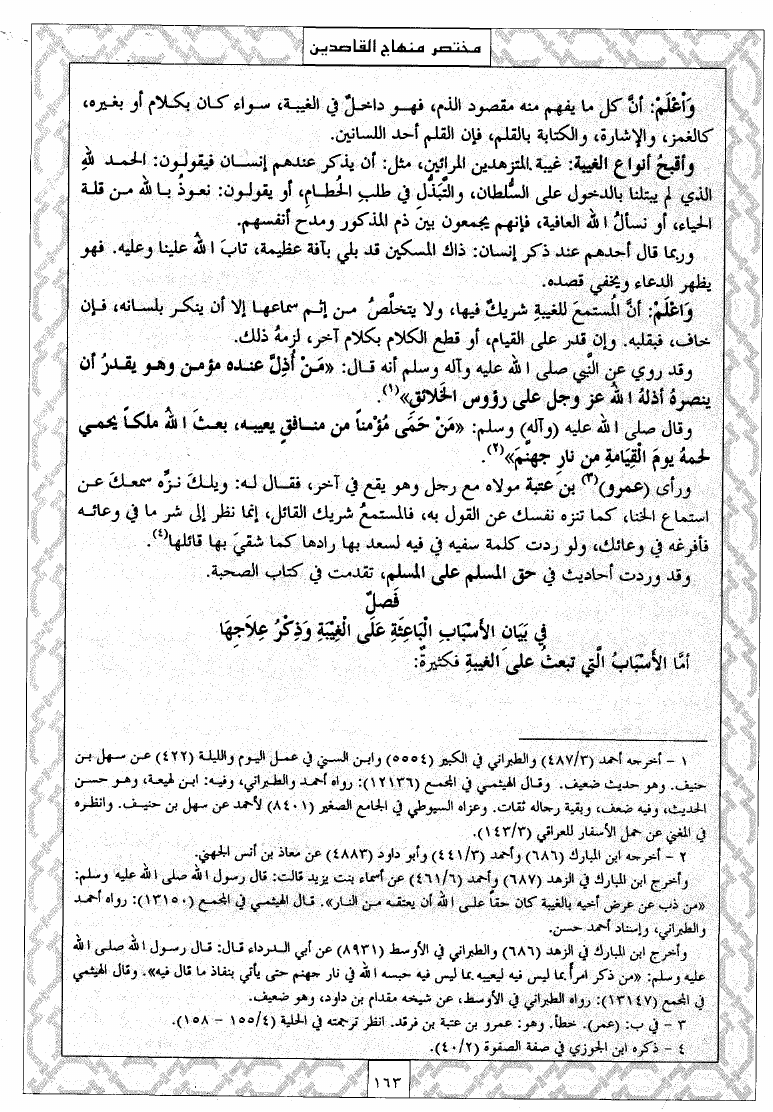 مختصر منهاج القاصدين
وَاْعْلَمْ: أنَّ كل ما يفهم منه مقصود الذم، فهو داخلٌ في الغيبة، سواء كان بكلام أو بغيره،
كالغمز، والإشارة، والكتابة بالقلم، فإن القلم أحد اللسانين.
وأقبحُ أنواع الغيبة: غيبة المتزهدين المرائين، مثل: أن يذكر عندهم إنسان فيقولون: الحمد للهِ
الذي لم يبتلنا بالدخول على السُّلطان، والتَّبذُّل في طلبِ الحُطام، أو يقولون: نعوذُ بالله من قلة
الحياء، أو نسألُ الله العافية، فإنهم يجمعون بين ذم المذكور ومدح أنفسهم.
وربما قال أحدهم عند ذكر إنسان: ذاك المسكين قد بلي بآفة عظيمة، تابَ اللهُ علينا وعليه. فهو
يظهر الدعاء ويخفي قصده.
وَاعْلَمْ: أنَّ المُستمعَ للغيبةِ شريكٌ فيها، ولا يتخلّصُ من إثم سماعها إلا أن ينكر بلسانه، فإن
خاف، فبقلبه. وإن قدر على القيام، أو قطع الكلام بكلام آخر، لزمهُ ذلك.
وقد روي عن النَّبي صلى الله عليه وآله وسلم أنه قال: «مَنْ أُذِلَّ عنده مؤمن وهو يقدرُ أن
ينصرهُ أذلهُ اللهُ عز وجل على رؤوس الخلائق»(١).
وقال صلى الله عليه (وآله) وسلم: «مَنْ حَمَى مُؤْمناً من منافقٍ يعيبه، بعثَ اللهُ ملكاً يحمي
لحمهُ يومَ القِيامةِ من نارِ جهنَّمَ»(٢).
ورأى (عمرو)(٣) بن عتبة مولاه مع رجل وهو يقع في آخر، فقال له: ويلكَ نزِّه سمعكَ عن
استماع الخنا، كما تنزه نفسك عن القول به، فالمستمعُ شريك القائل، إنما نظر إلى شر ما في وعائه
فأفرغه في وعائك، ولو ردت كلمة سفيه في فيه لسعد بها رادها كما شقيَ بها قائلها(٤).
وقد وردت أحاديث في حق المسلم على المسلم، تقدمت في كتاب الصحبة.
فَصلٌ
في بَيَانِ الأَسبَابِ الْبَاعِثَةِ عَلَى الْغِيْبَةِ وَذِكْرُ عِلاَجِهَا
أمَّا الأَسبَابُ الَّتي تبعثُ على الغيبةِ فكثيرةٌ:
١ - أخرجه أحمد (٤٨٧/٣) والطبراني في الكبير (٥٥٥٤) وابن السني في عمل اليوم والليلة (٤٢٢) عن سهل بن
حنيف. وهو حديث ضعيف. وقال الهيثمي في المجمع (١٢١٣٦): رواه أحمد والطبراني، وفيه: ابن لهيعة، وهو حسن
الحديث، وفيه ضعف، وبقية رجاله ثقات. وعزاه السيوطي في الجامع الصغير (٨٤٠١) لأحمد عن سهل بن حنيف. وانظره
في المغني عن حمل الأسفار للعراقي (١٤٣/٣).
٢ - أخرجه ابن المبارك (٦٨٦) وأحمد (٤٤١/٣) وأبو داود (٤٨٨٣) عن معاذ بن أنس الجهني.
وأخرج ابن المبارك في الزهد (٦٨٧) وأحمد (٤٦١/٦) عن أسماء بنت يزيد قالت: قال رسول الله صلى الله عليه وسلم:
«من ذب عن عرض أخيه بالغيبة كان حقاً على الله أن يعتقه من النار». قال الهيثمي في المجمع (١٣١٥٠): رواه أحمد
والطبراني، وإسناد أحمد حسن.
وأخرج ابن المبارك في الزهد (٦٨٦) والطبراني في الأوسط (٨٩٣١) عن أبي الدرداء قال: قال رسول الله صلى الله
عليه وسلم: «من ذكر امرأً بما ليس فيه ليعيبه بما ليس فيه حبسه الله في نار جهنم حتى يأتي بنفاذ ما قال فيه». وقال الهيثمي
في المجمع (١٣١٤٧): رواه الطبراني في الأوسط، عن شيخه مقدام بن داود، وهو ضعيف.
٣ - في ب: (عمر). خطأ. وهو: عمرو بن عتبة بن فرقد. انظر ترجمته في الحلية (١٥٥/٤ - ١٥٨).
٤ - ذكره ابن الجوزي في صفة الصفوة (٤٠/٢).
١٦٣